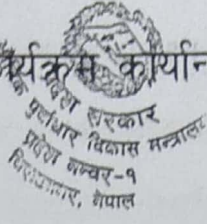 र्यक्रम कार्यान
प्रदेश सरकार
पूर्वाधार विकास मन्त्रालय
प्रदेश नम्बर-१
विराटनगर, नेपाल